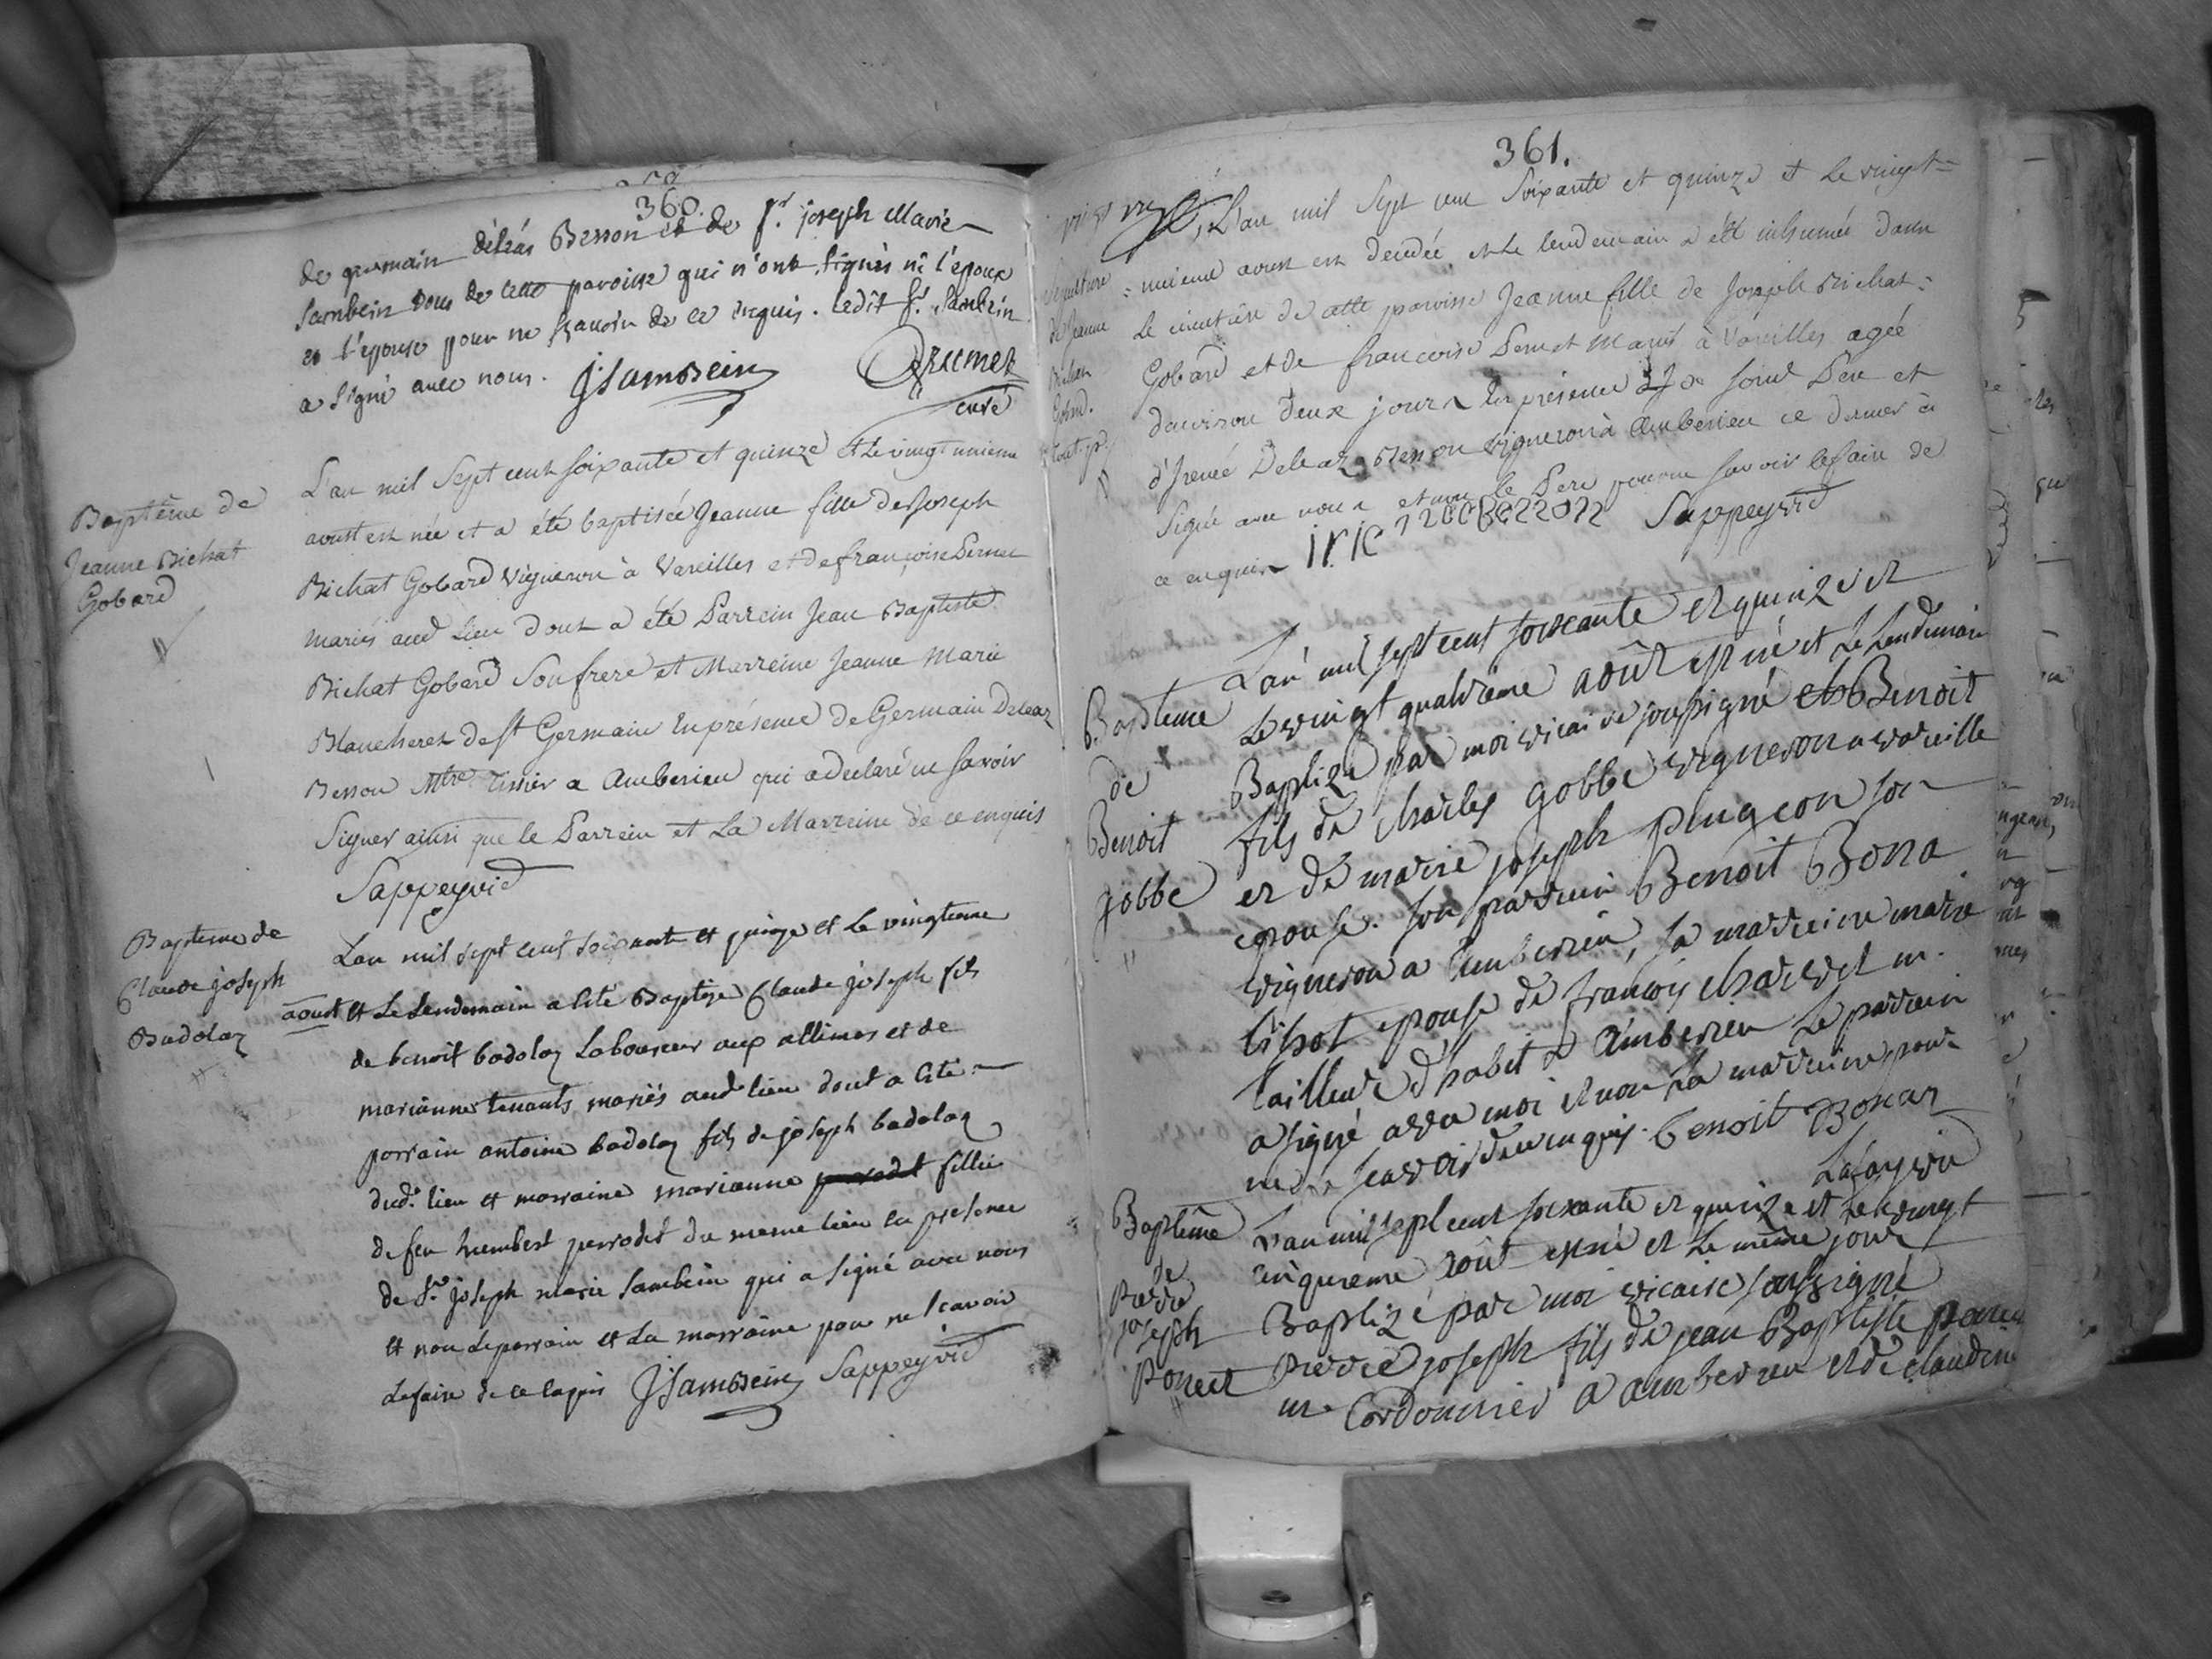 360.
de germain déléas Besson et de Sr. joseph Marie
Sambein tous de cette paroisse qui n'ont signés ni l'epoux
ni l'epouse pour ne sçavoir de ce enquis. ledit Sr. Sambein
a signé avec nous. JSambein
curé
Baptême de
Jeanne Bichat
Gobard
L'an mil Sept cent soixante et quinze et le vingt unieme
aoust est née et a été baptisée Jeanne fille de Joseph
Bichat Gobard Vigneron à Vareilles et de françoise Pernet
mariés aud lieu dont a été Parrein Jean Baptiste
Bichat Gobard Son frere et Marreine Jeanne Marie
Blancheret de st Germain En présence de Germain Deleaz
Besson Mtre Tissier a Amberieu qui a declaré ne savoir
Signer ainsi que le Parrein et La Marreine de ce enquis
Sappeyvid
Bapteme de
Claude joseph
Badolaz
Lan mil sept cent soixante et quinze et Le vingtieme
aoust et Le Lendemain a été Baptizé Claude joseph fils
de benoit badolaz Laboureur aux allimes et de
marianne tenants mariés aud lieu dont a été
parrain antoine badolaz fils de joseph badolaz
dud. lieu et marraine marianne fillie
de feu humbert perrodet du meme lieu en presence
de Sr. joseph marie Sambein qui a signé avec nous
et non le parrain et La marraine pour ne scavoir
Le faire de ce enquis JSambein Sappeyvid
361.
L'an mil Sept cent Soixante et quinze et Le vingt=
sepulture
de Jeanne
Bichat
Gobard.
=unieme aoust est decedée et Le lendemain a été inhumée dans
Le cimetiere de cette paroisse Jeanne fille de Joseph Bichat=
Gobard et de francoise Pernet Mariés à Vareilles agée
d'environ deux jours En présence de Son Pere et
d'Irenée Deleaz Besson vigneron à Amberieu ce dernier a
Signé avec nous et non le Pere pour ne savoir le faire de
ce enquis Sappeyvid
Baptême
de
Benoit
gobbe
L'an mil sept cent soixante et quinze et
Le vingt quatrieme août est né et Le Lendemain
Baptizé par moi vicaire soussigné Benoit
fils de charles gobbe vigneron a vareille
et de marie joseph pingeon son
epouse. son parrein Benoit Bona
vigneron a amberieu, sa marreine marie
lissot epouse de françois charvet m.
tailleur d'habit a Amberieu Le parrein
a signé avec moi et non La marreine pour
ne Le scavoir de ce enquis. benoit Bonaz
Baptême
de
Pierre
joseph
Ponect
L'an mil sept cent soixante et quinze et Le vingt
cinquieme août est né et Le même jour
Baptizé par moi vicaire soussigné
Pierre joseph fils de jean Baptiste
m. Cordonnier a amberieu et de claudine